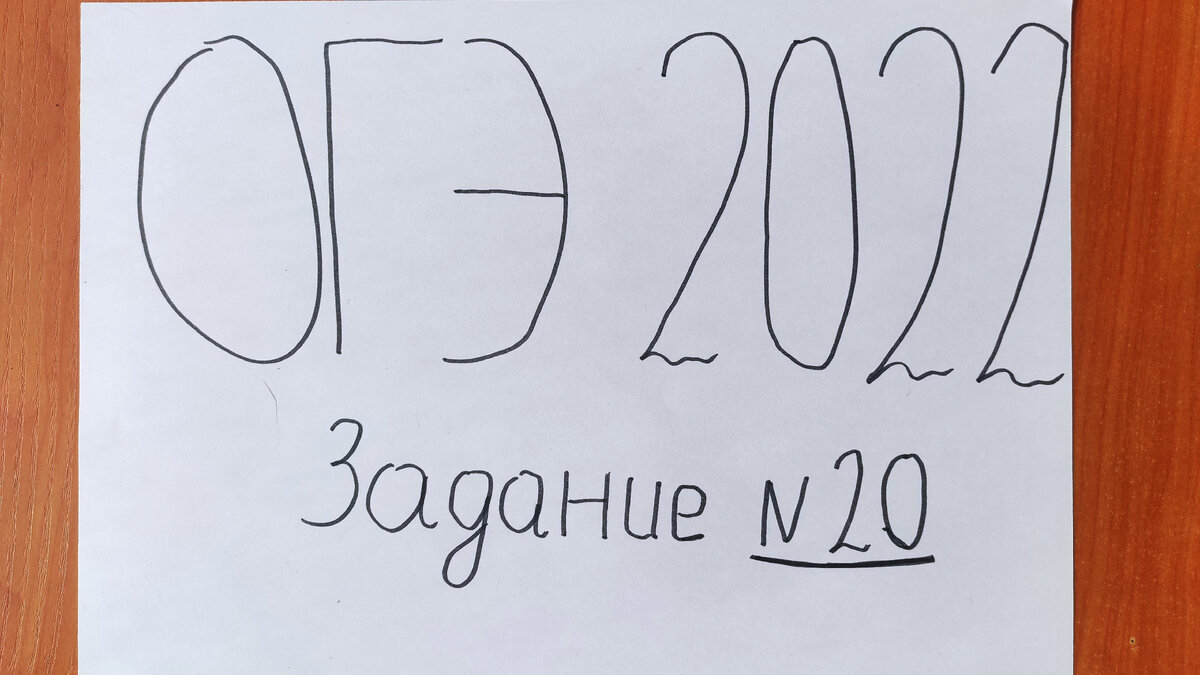 ОГЭ 2022
Задание N20